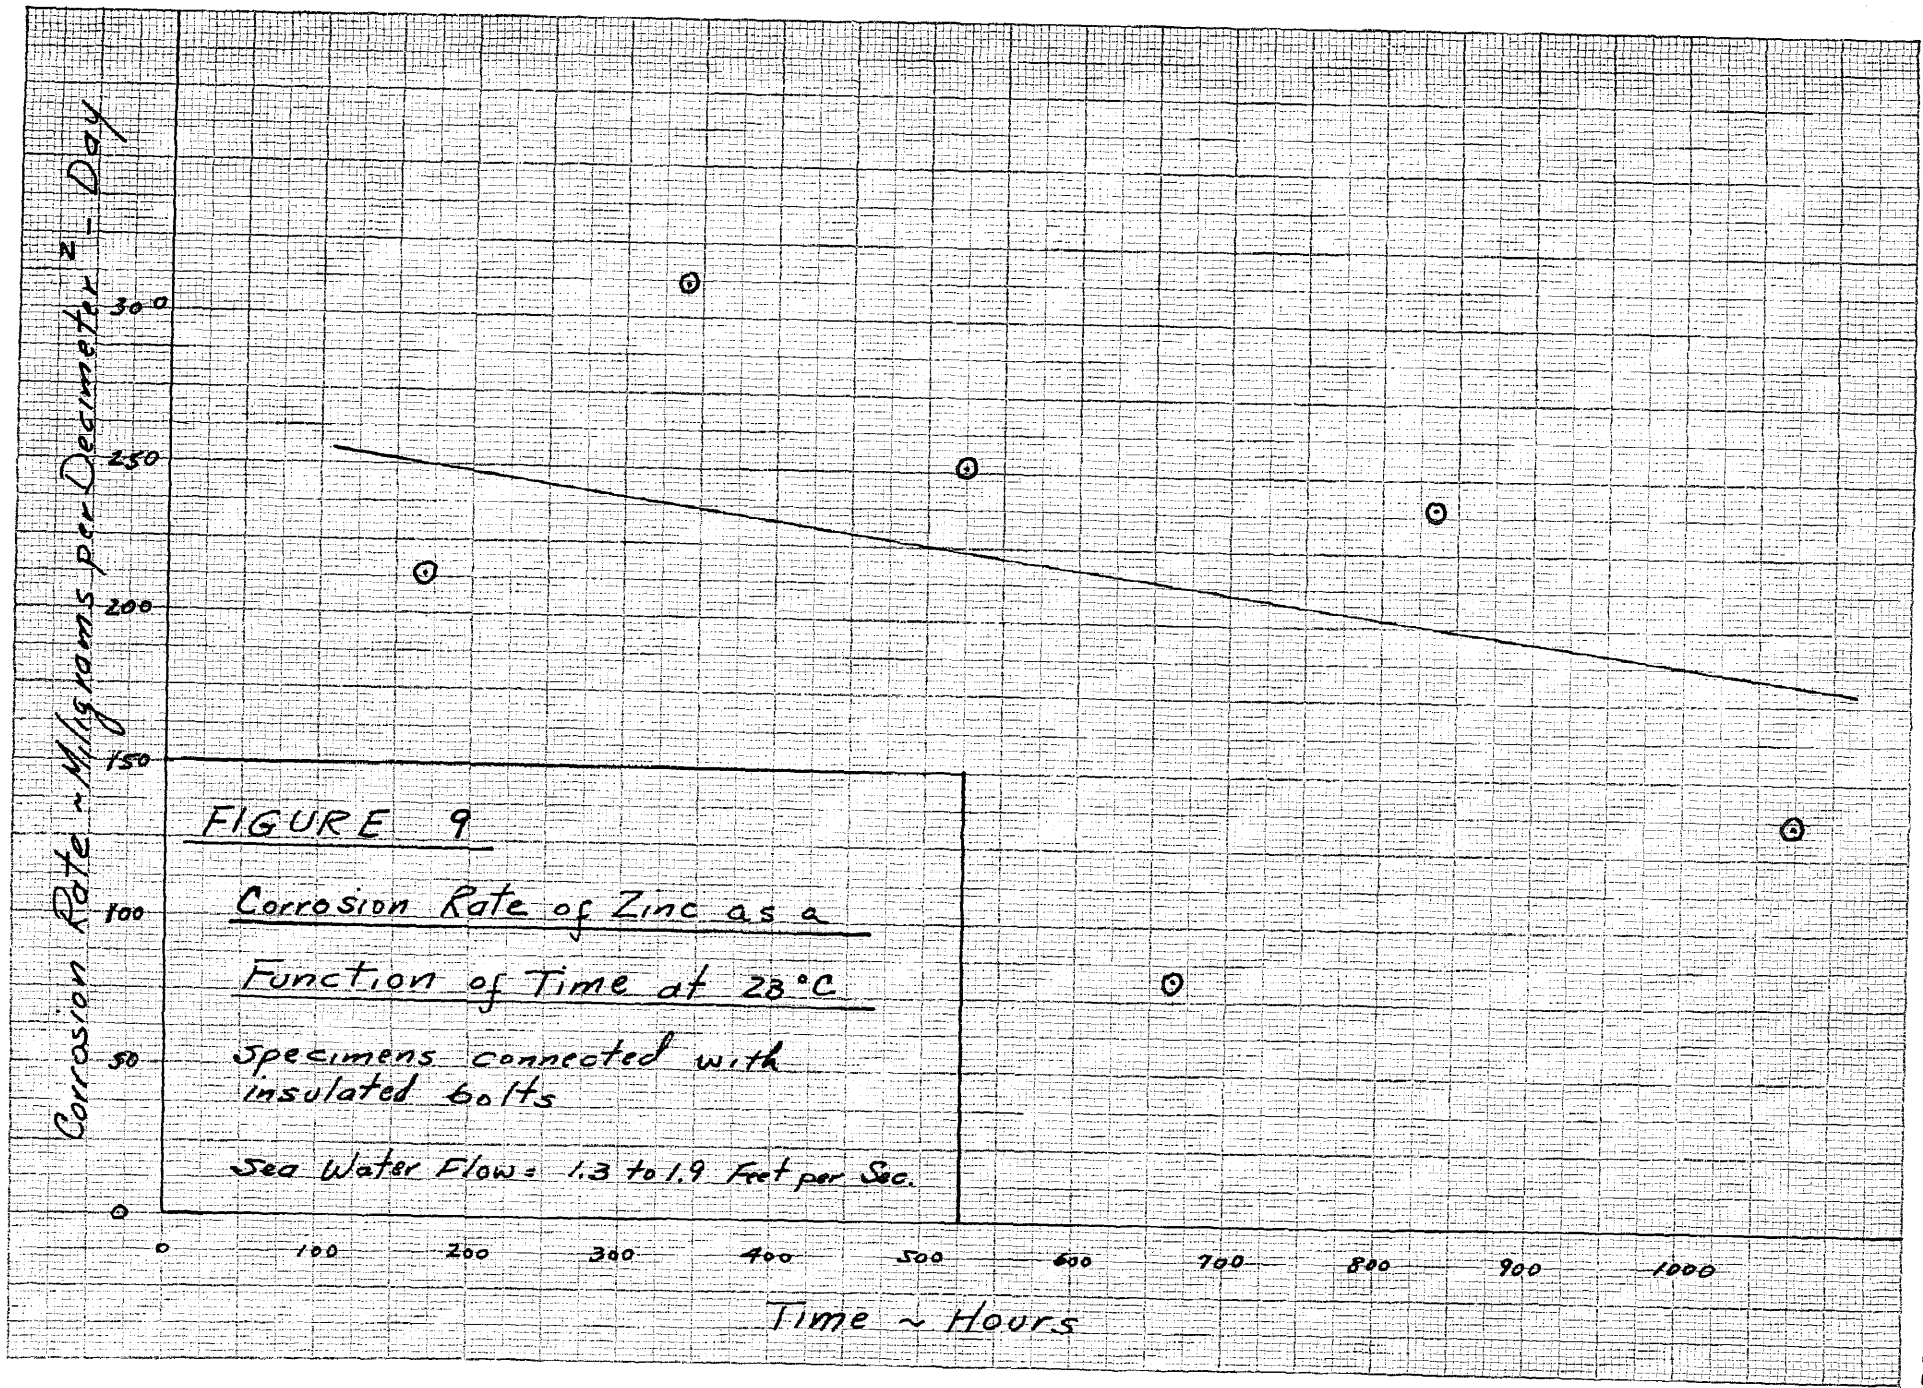 Corrosion Rate ~ Milligrams per Decimeter² - Day
300
250
200
150
100
50
0
FIGURE 9
Corrosion Rate of Zinc as a
Function of Time at 23°C
specimens connected with
insulated bolts
Sea Water Flow = 1.3 to 1.9 Feet per Sec.
0 100 200 300 400 500 600 700 800 900 1000
Time ~ Hours